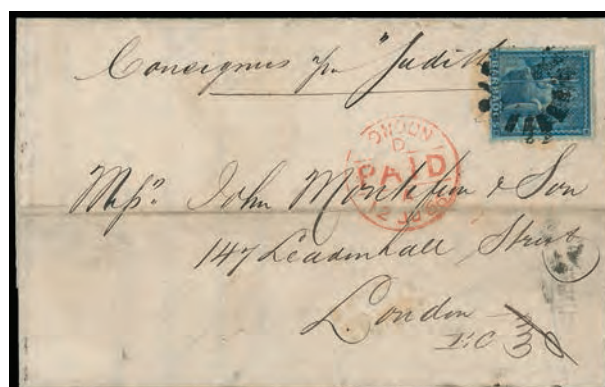 Consignees pr "Judith
BARBADOS
LONDON
D
PAID
12 JU
Messrs. John & Son
147 Leadenhall Street
London
E.C
3